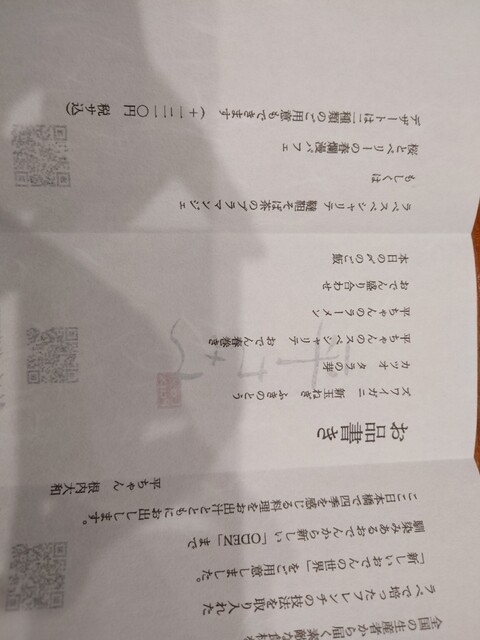 全国の生産者から届く素敵な食材を
ラペで培ったフレンチの技法を取り入れた
「新しいおでんの世界」をご用意しました。
馴染みあるおでんから新しい「ODEN」まで
ここ日本橋で四季を感じる料理をお出汁とともにお出しします。
平ちゃん 根内大和
お品書き
ズワイガニ 新玉ねぎ ふきのとう
カツオ タラの芽
平ちゃんのスペシャリテ おでん春巻き
平ちゃんのラーメン
おでん盛り合わせ
本日の〆のご飯
ラペスペシャリテ 韃靼そば茶のブラマンジェ
もしくは
桜とベリーの春爛漫パフェ
デザートは二種類のご用意もできます (+一二一〇円 税サ込)